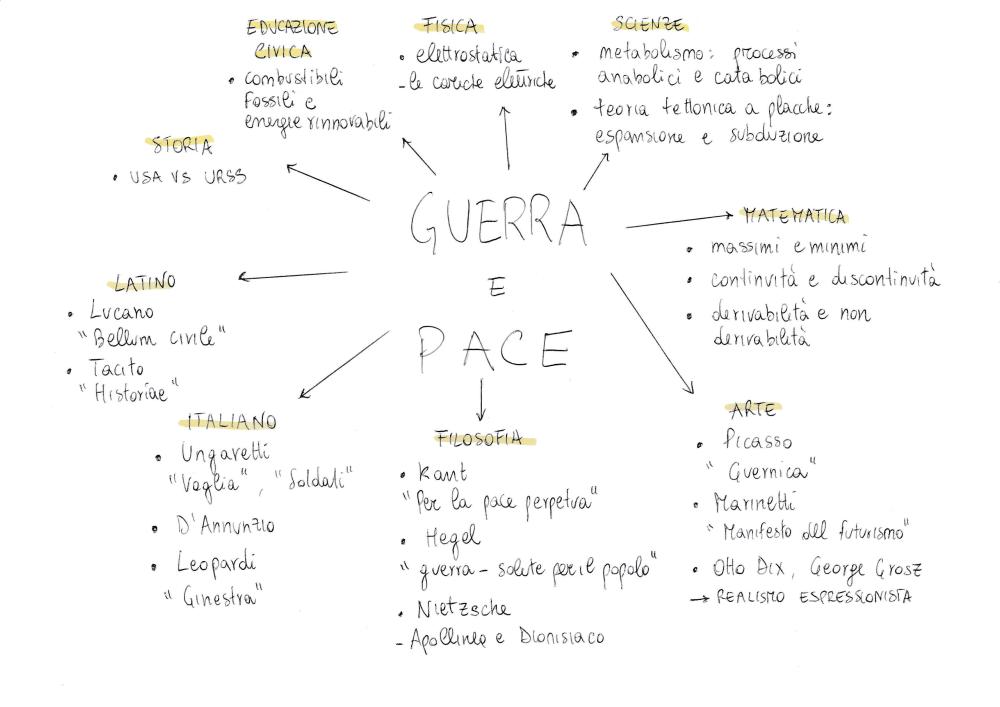 EDUCAZIONE
CIVICA
• combustibili
fossili e
energie rinnovabili
FISICA
• elettrostatica
- le cariche elettriche
SCIENZE
• metabolismo: processi
anabolici e catabolici
• teoria tettonica a placche:
espansione e subduzione
STORIA
• USA VS URSS
GUERRA
E
PACE
MATEMATICA
• massimi e minimi
• continuità e discontinuità
• derivabilità e non
derivabilità
LATINO
• Lucano
"Bellum civile"
• Tacito
"Historiae"
ITALIANO
• Ungaretti
"Veglia", "Soldati"
• D'Annunzio
• Leopardi
"Ginestra"
FILOSOFIA
• Kant
"Per la pace perpetua"
• Hegel
"guerra - salute per il popolo"
• Nietzsche
- Apollineo e Dionisiaco
ARTE
• Picasso
"Guernica"
• Marinetti
"Manifesto del futurismo"
• Otto Dix, George Grosz
→ REALISMO ESPRESSIONISTA